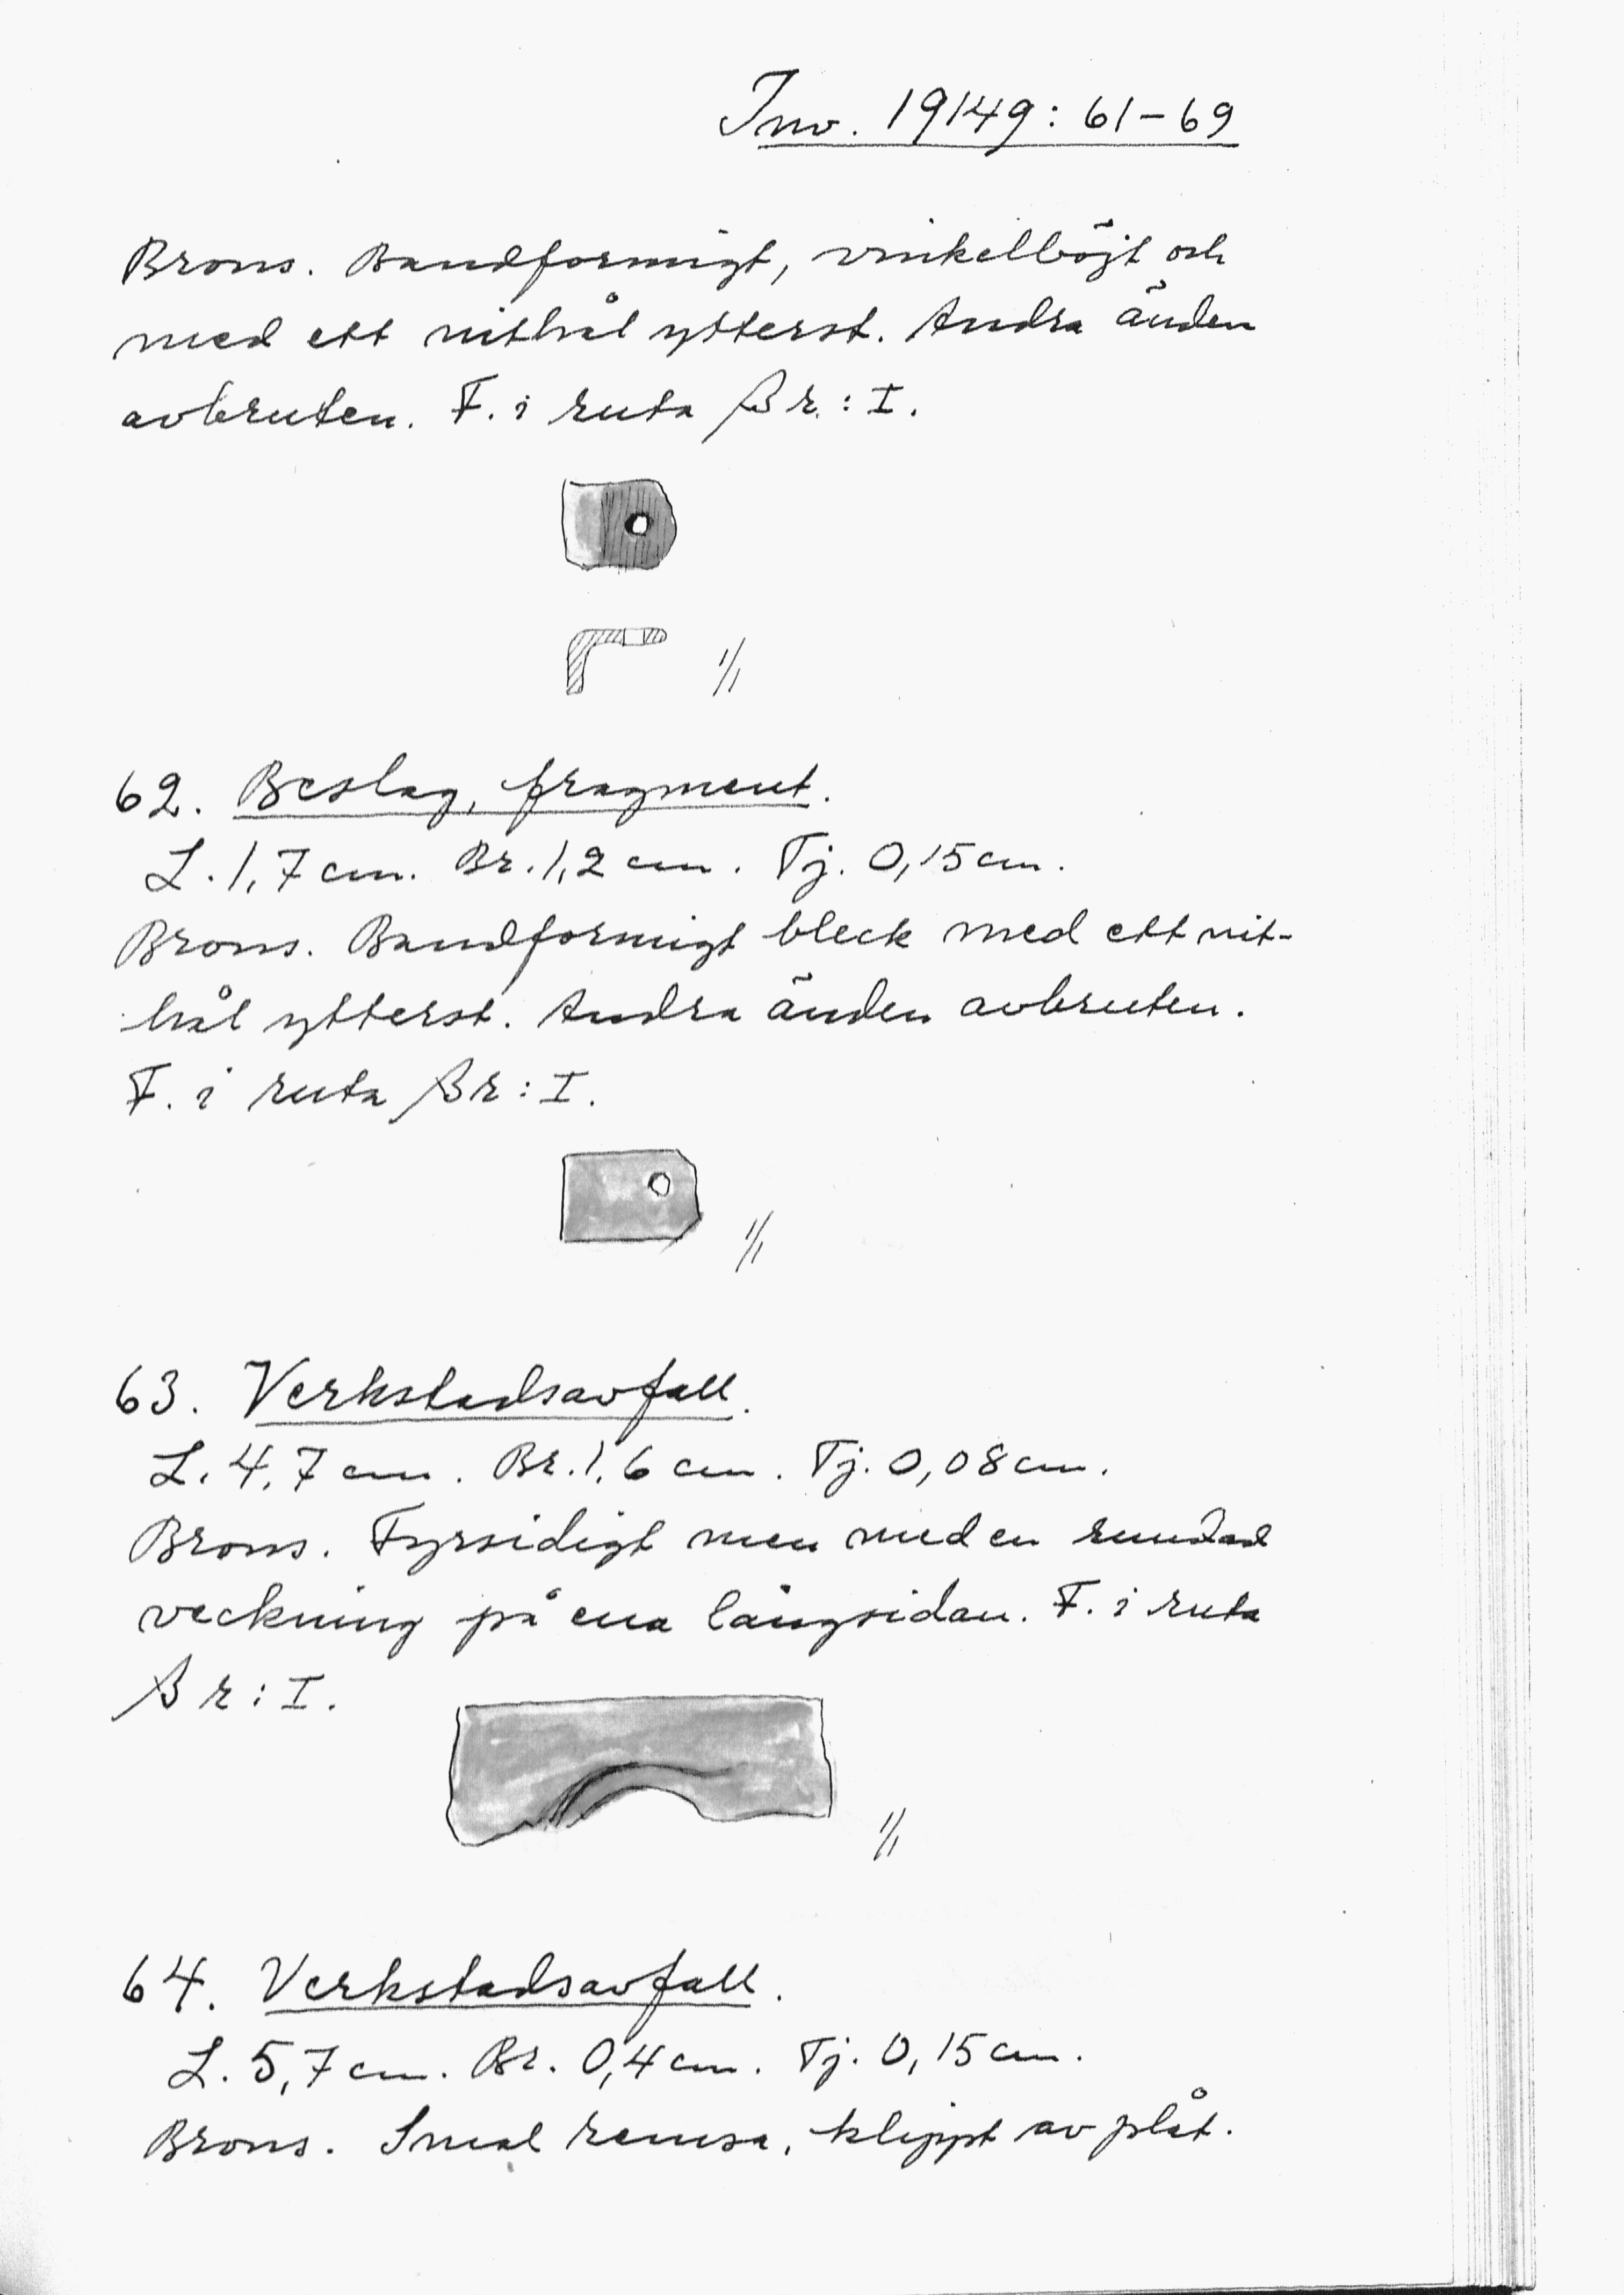 Inv. 19149: 61-69
Brons. Bandformigt, vinkelböjt och
med ett nithål ytterst. Andra änden
avbruten. F. i ruta Br.: I.
1/1
62. Beslag, fragment.
L. 1,7 cm. Br. 1,2 cm. Tj. 0,15 cm.
Brons. Bandformigt bleck med ett nit-
hål ytterst. Andra änden avbruten.
F. i ruta Br: I.
1/1
63. Verkstadsavfall.
L. 4,7 cm. Br. 1,6 cm. Tj. 0,08 cm.
Brons. Fyrsidigt men med en rundad
veckning på ena långsidan. F. i ruta
Br: I.
1/1
64. Verkstadsavfall.
L. 5,7 cm. Br. 0,4 cm. Tj. 0,15 cm.
Brons. Smal remsa, klippt av plåt.